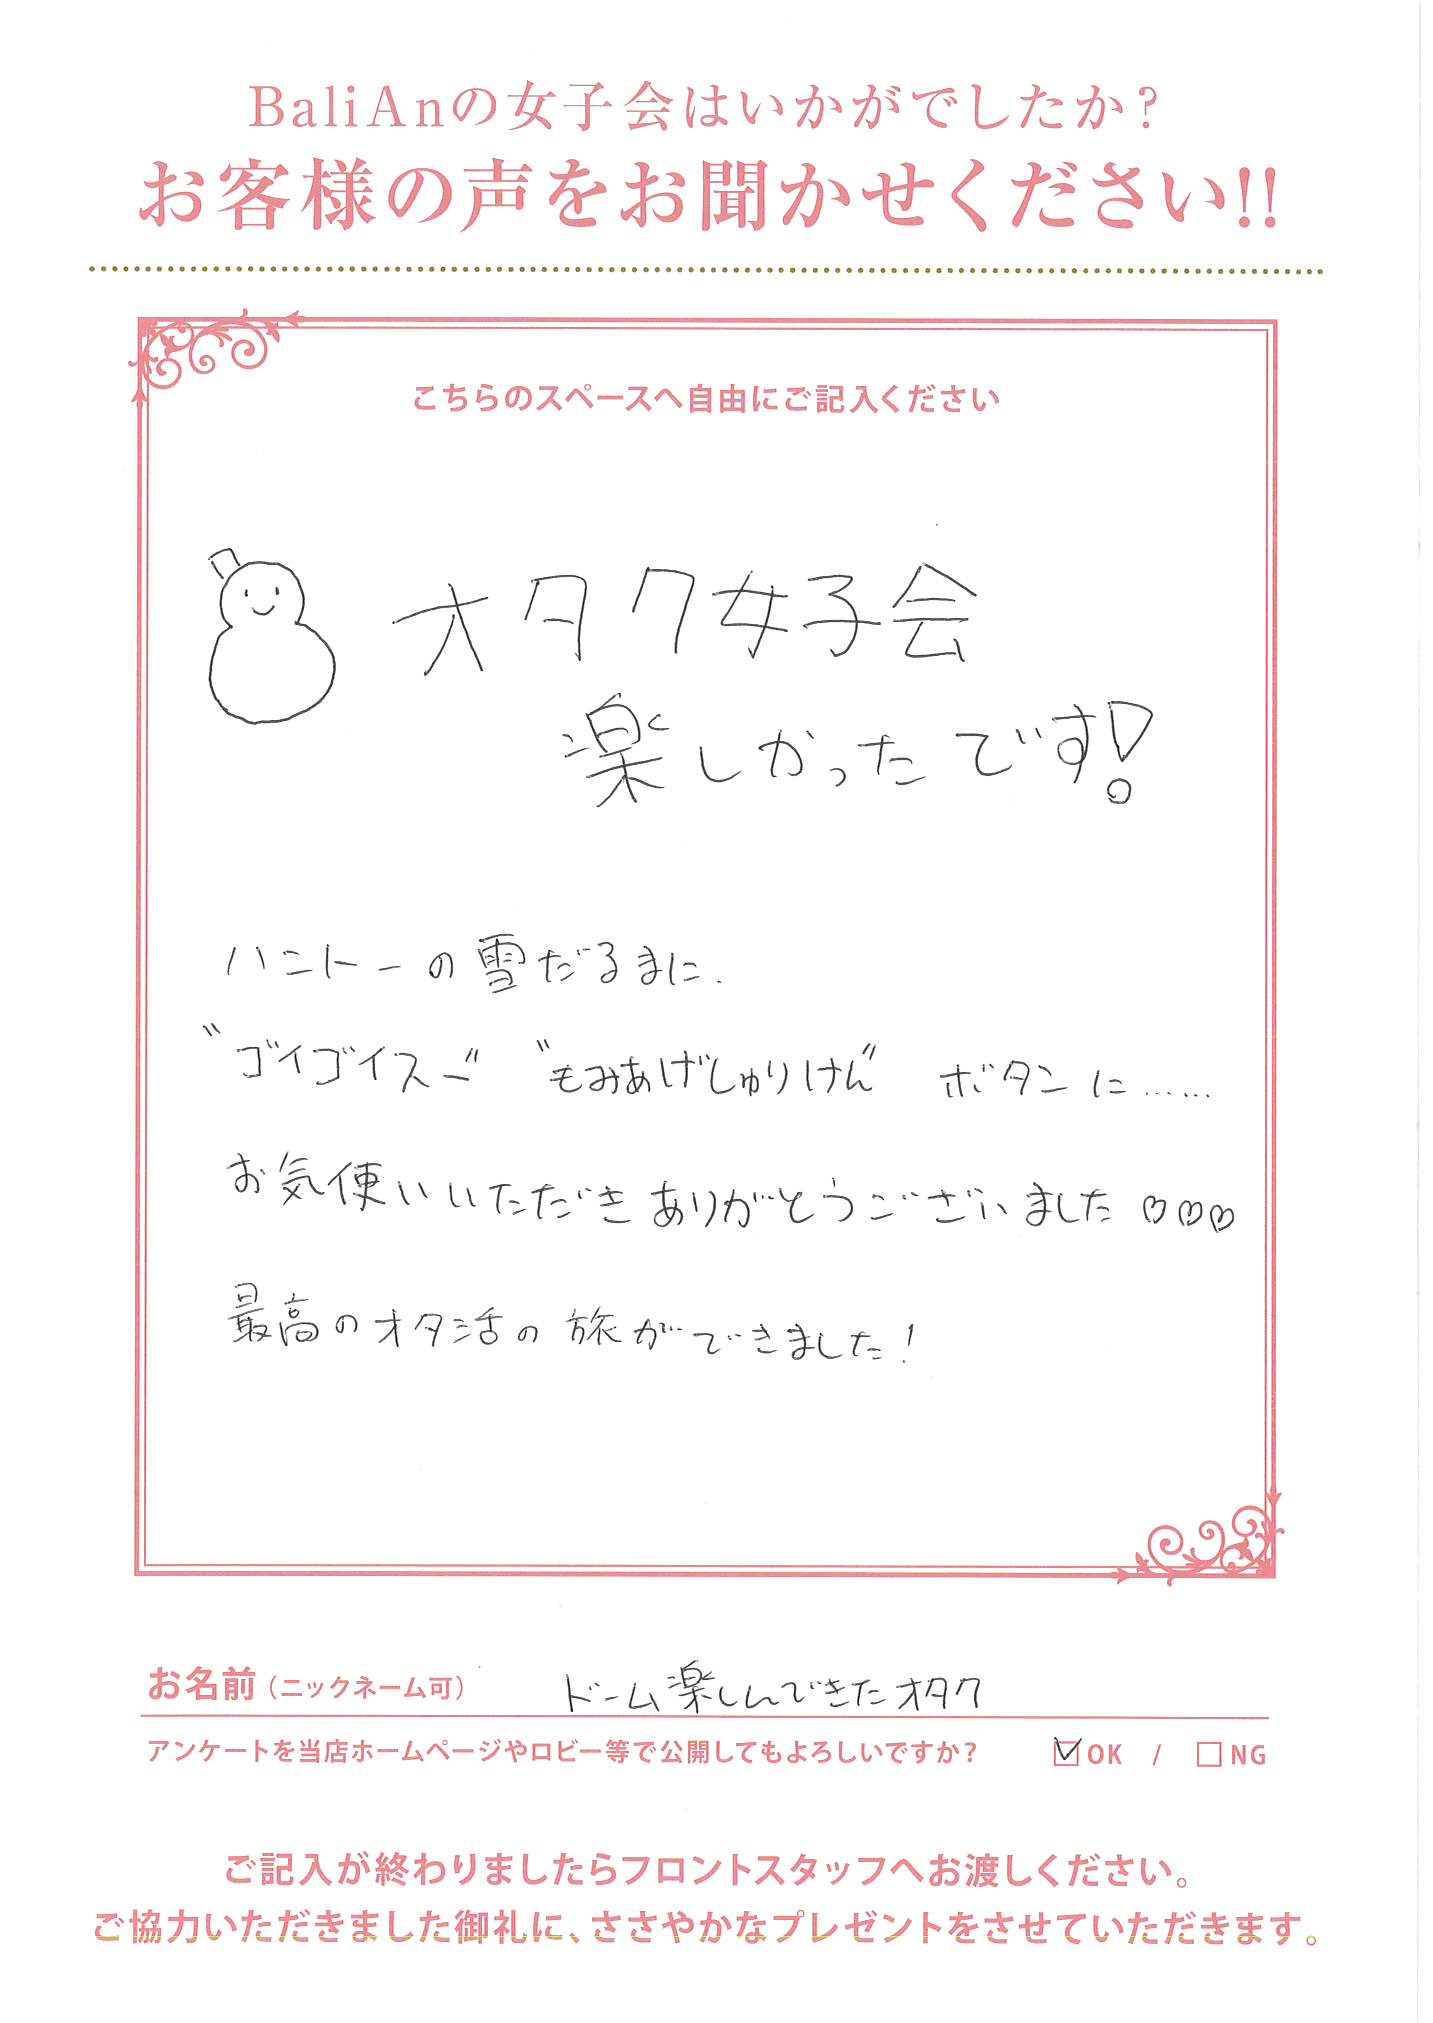 BaliAnの女子会はいかがでしたか?
お客様の声をお聞かせください!!
こちらのスペースへ自由にご記入ください
オタク女子会
楽しかったです!
ハントーの雪だるまに、
〝ゴイゴイスー〞 〝もみあげしゅりけん〞 ボタンに……
お気使いいただきありがとうございました♡♡♡
最高のオタ活の旅ができました!
お名前(ニックネーム可) ドーム楽しんできたオタク
アンケートを当店ホームページやロビー等で公開してもよろしいですか? ☑OK / □NG
ご記入が終わりましたらフロントスタッフへお渡しください。
ご協力いただきました御礼に、ささやかなプレゼントをさせていただきます。